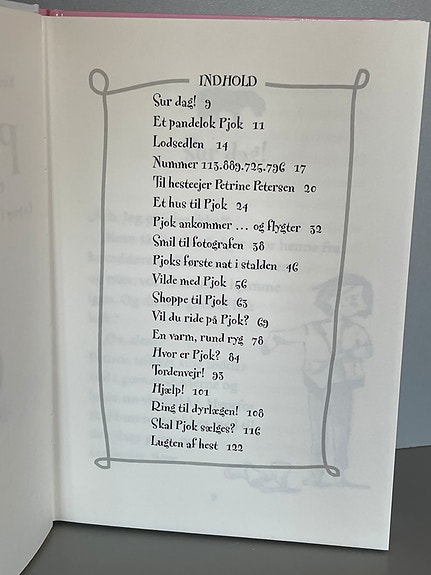 INDHOLD
Sur dag! 9
Et pandelok Pjok 11
Lodsedlen 14
Nummer 113.889.725.796 17
Til hesteejer Petrine Petersen 20
Et hus til Pjok 24
Pjok ankommer ... og flygter 32
Smil til fotografen 38
Pjoks første nat i stalden 46
Vilde med Pjok 56
Shoppe til Pjok 63
Vil du ride på Pjok? 69
En varm, rund ryg 78
Hvor er Pjok? 84
Tordenvejr! 93
Hjælp! 101
Ring til dyrlægen! 108
Skal Pjok sælges? 116
Lugten af hest 122